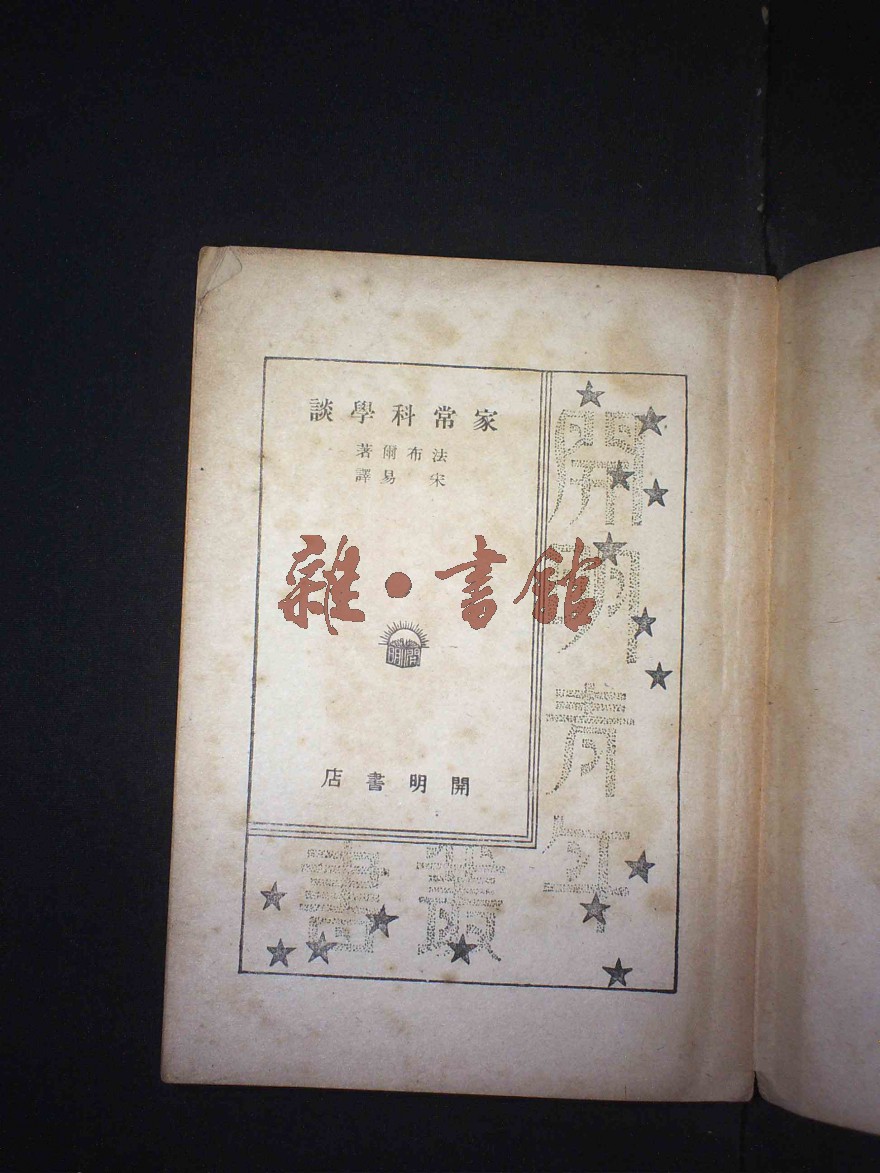 家常科學談
法布爾著
宋易譯
雜·書館
開明
開明書店
開明青年
叢書